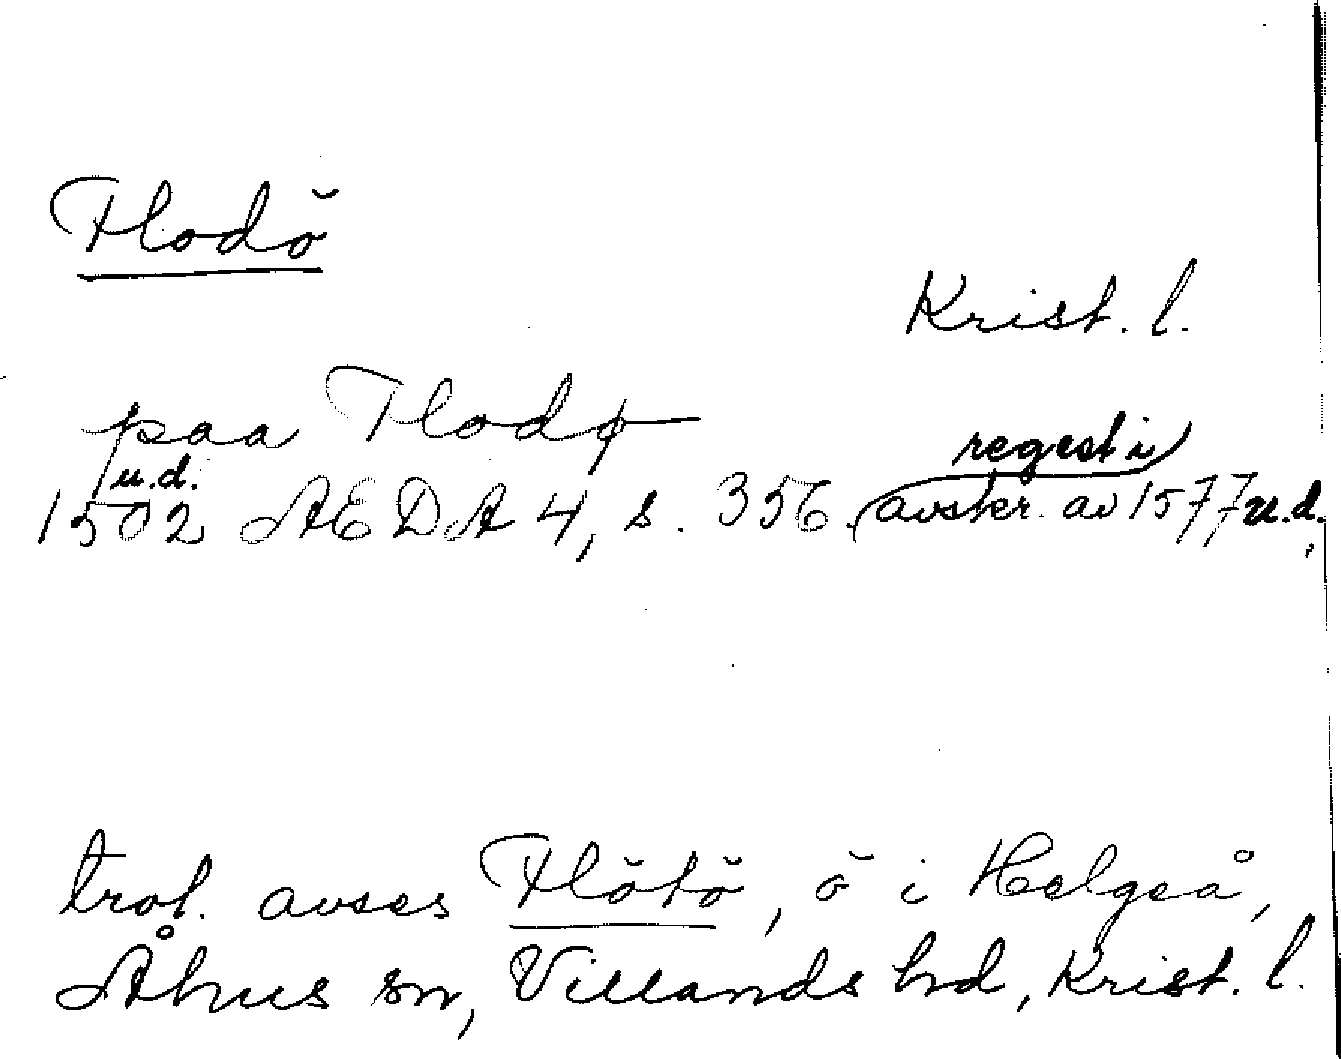 Flodö
Krist. l.
paa Flodø
regest i
u.d.
1502 AEDA 4, s. 356. (avskr. av 1577 u.d.,
trol. avses Flötö, ö i Helgeå,
Åhus sn, Villands hd, Krist. l.